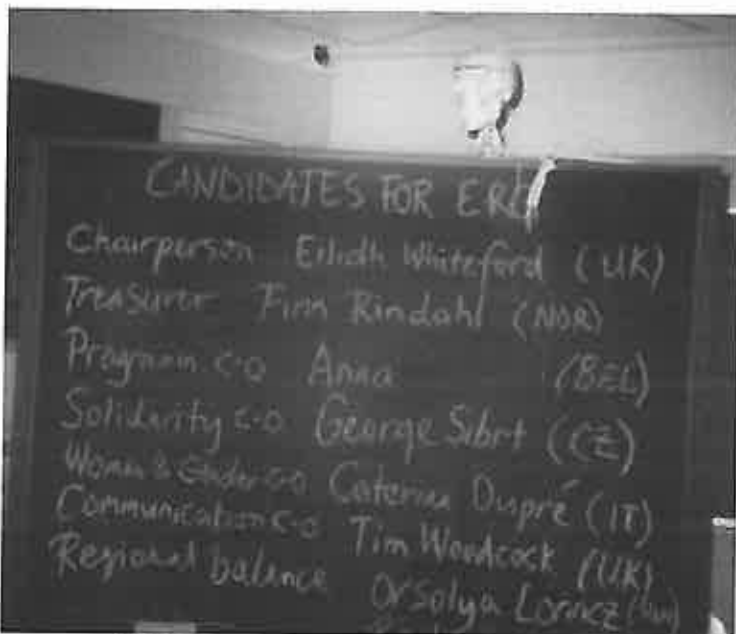 CANDIDATES FOR ERC
Chairperson Eilidh Whiteford (UK)
Treasurer Finn Rindahl (NOR)
Program c-o Anna (BEL)
Solidarity c-o George Sibrt (CZ)
Women & Gender c-o Caterina Dupré (IT)
Communication c-o Tim Woodcock (UK)
Regional balance Orsolya Lorincz